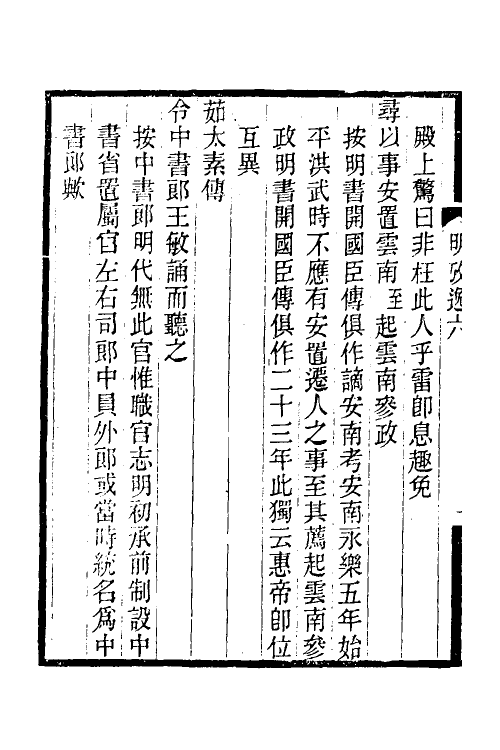 明攷逸六
殿上驚曰非枉此人乎雷卽息趣免
尋以事安置雲南至起雲南參政
按明書開國臣傳俱作謫安南考安南永樂五年始
平洪武時不應有安置遷人之事至其薦起雲南參
政明書開國臣傳俱作二十三年此獨云惠帝卽位
互異
茹太素傳
令中書郎王敏誦而聽之
按中書郎明代無此官惟職官志明初承前制設中
書省置屬官左右司郎中員外郎或當時統名爲中
書郎歟